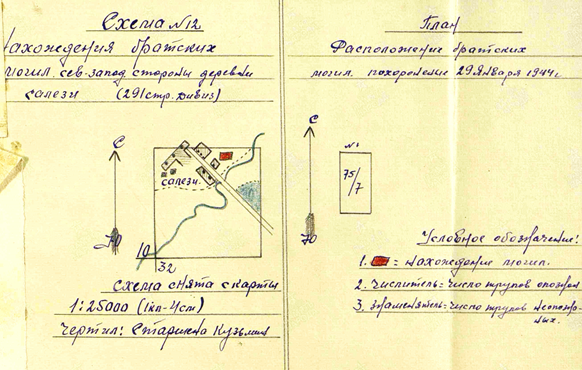 Схема №12
Нахождения братских
могил сев-запод стороны деревни
салези (291 стр. дивиз)
С
салези.
Ю
10
32
Схема снята с карты
1:25000 (1км-4см)
Чертил: Старшина Кузьмин
План
Расположение братских
могил похоронение 29 Января 1944г
С
№1
75/7
Ю
Условное обозначение!
1. = нахождения могил.
2. Числитель = число трупов опознан
3. знаменатель = число трупов неопозна-
ных.